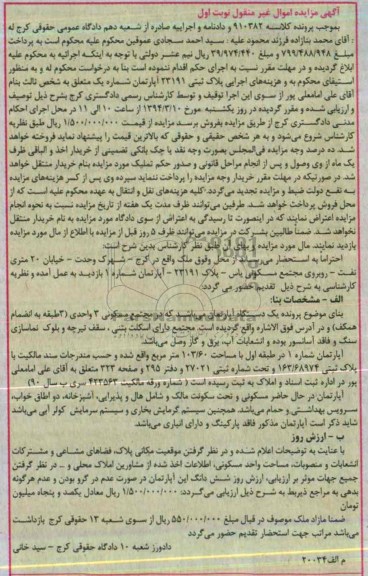 آگهی مزایده اموال غیر منقول نوبت اول
بموجب پرونده کلاسه ۹۱۰۳۸۲ و دادنامه و اجراییه صادره از شعبه دهم دادگاه عمومی حقوقی کرج له
: آقای محمد بناززاده فرزند محمود علیه : سید احمد سجادی عموقین محکوم علیه محکوم است به پرداخت
مبلغ ۷۹۹/۴۸۸/۹۴۸ و مبلغ ۳۹/۹۷۴/۴۴۰ ریال نیم عشر دولتی با توجه به اینکه اجرائیه به محکوم علیه
ابلاغ گردیده و در مهلت مقرر نسبت به اجرای حکم اقدام ننموده است بنا به درخواست محکوم له و به منظور
استیفای محکوم به و هزینه‌های اجرایی پلاک ثبتی ۲۳۱۹۱ آپارتمان شماره یک متعلق به شخص ثالث بنام
آقای علی امامعلی پور از سوی این اجرا توقیف و توسط کارشناس رسمی دادگستری کرج بشرح ذیل توصیف
و ارزیابی شده و مقرر گردیده در روز یکشنبه مورخ ۱۳۹۴/۳/۱۰ از ساعت ۱۰ الی ۱۱ در محل اجرای احکام
مدنی دادگستری کرج از طریق مزایده بفروش برسد مزایده از قیمت ۱/۵۰۰/۰۰۰/۰۰۰ ریال طبق نظریه
کارشناس شروع می‌شود و به هر شخص حقیقی و حقوقی که بالاترین قیمت را پیشنهاد نماید فروخته خواهد
شد. ده درصد وجه مزایده فی‌المجلس بصورت وجه نقد یا چک بانکی تضمینی از خریدار اخذ و الباقی ظرف
یک ماه از وی وصول و پس از انجام مراحل قانونی و صدور حکم تملیک مورد مزایده بنام خریدار منتقل خواهد
شد. در صورتیکه در مهلت مقرر خریدار وجه مزایده را پرداخت ننماید سپرده وی پس از کسر هزینه‌های مزایده
به نفع دولت ضبط و مزایده تجدید می‌گردد. کلیه هزینه‌های نقل و انتقال به عهده محکوم علیه است که از
محل فروش پرداخت خواهد شد. طرفین می‌توانند ظرف مدت یک هفته از تاریخ مزایده نسبت به نحوه انجام
مزایده اعتراض نمایند که در اینصورت تا رسیدگی به اعتراض از سوی دادگاه مورد مزایده به نام خریدار منتقل
نخواهد شد. ضمناً طالبین بشرکت در مزایده می‌توانند ظرف ۵ روز قبل از مزایده با اطلاع از مال مورد مزایده
بازدید نمایند. مال مورد مزایده و بهای آن طبق نظر کارشناس بدین شرح است:
احتراما به استحضار می‌رساند از محل وقوع ملک واقع در کرج – شهرک وحدت – خیابان ۲۰ متری
نفت – روبروی مجتمع مسکونی یاس – پلاک ۲۳۱۹۱ – آپارتمان شماره ۱ بازدید به عمل آمده و نظریه
کارشناسی به شرح ذیل تقدیم حضور می گردد:
الف – مشخصات بنا:
بنای موضوع پرونده یک دستگاه آپارتمان می‌باشد که در مجتمع مسکونی ۳ واحدی (۳طبقه به انضمام
همکف) و در آدرس فوق الاشاره واقع گردیده است. مجتمع دارای اسکلت بتنی ، سقف تیرچه و بلوک نماسازی
سنگ و فاقد آسانسور بوده و انشعابات آب، برق و گاز وصل می‌باشد.
آپارتمان شماره ۱ در طبقه اول با مساحت ۱۰۳/۶۰ متر مربع واقع شده و حسب مندرجات سند مالکیت با
پلاک ثبتی ۱۶۳/۶۸۹۷۴ و تحت شماره ثبتی ۲۷۰۲۱ و دفتر ۲۹۵ و صفحه ۳۲۳ متعلق به آقای علی امامعلی
پور در اداره ثبت اسناد و املاک به ثبت رسیده است ( شماره ورقه مالکیت ۴۲۳۵۶۳ سری ب سال ۹۰)
آپارتمان در حال حاضر مسکونی و تحت سکونت مالک و شامل هال و پذیرایی، آشپزخانه، دو اطاق خواب،
سرویس بهداشتی و حمام می‌باشد. همچنین سیستم گرمایش بخاری و سیستم سرمایش کولر آبی می‌باشد
شاید ذکر است آپارتمان مذکور فاقد پارکینگ و دارای انباری می‌باشد.
ب – ارزش روز
با عنایت به توضیحات اعلام شده و در نظر گرفتن موقعیت مکانی پلاک، فضاهای مشاعی و مشترکات
انشعابات و منصوبات، مساحت واحد مسکونی، اطلاعات اخذ شده از مشاورین املاک محلی و .. در نظر گرفتن
جمیع جهات موثر بر ارزیابی، ارزش روز شش دانگ این آپارتمان در صورت عدم در گرو بودن و عدم هر گونه
بدهی به مراجع ذیربط به شرح ذیل ارزیابی می‌گردد: ۱/۵۰۰/۰۰۰/۰۰۰ ریال معادل یکصد و پنجاه میلیون
تومان
ضمنا مازاد ملک موصوف در قبال مبلغ ۵۵۰/۰۰۰/۰۰۰ ریال از سوی شعبه ۱۳ حقوقی کرج بازداشت
می‌باشد مراتب جهت استحضار تقدیم حضور می‌گردد
دادورز شعبه ۱۰ دادگاه حقوقی کرج – سید خانی
م الف۲۰۰۳۴